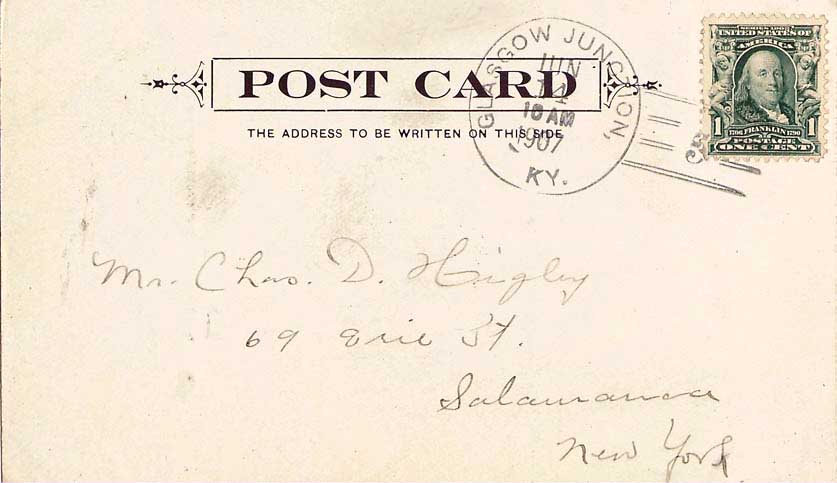 POST CARD
THE ADDRESS TO BE WRITTEN ON THIS SIDE
GLASGOW JUNCTION,
JUN
10 AM
1907
KY.
SERIES 1902
UNITED STATES OF
AMERICA
1 1
1706 FRANKLIN 1790
POSTAGE
ONE CENT
Mr. Chas. D. Higley
69 Erie St.
Salamanca
New York